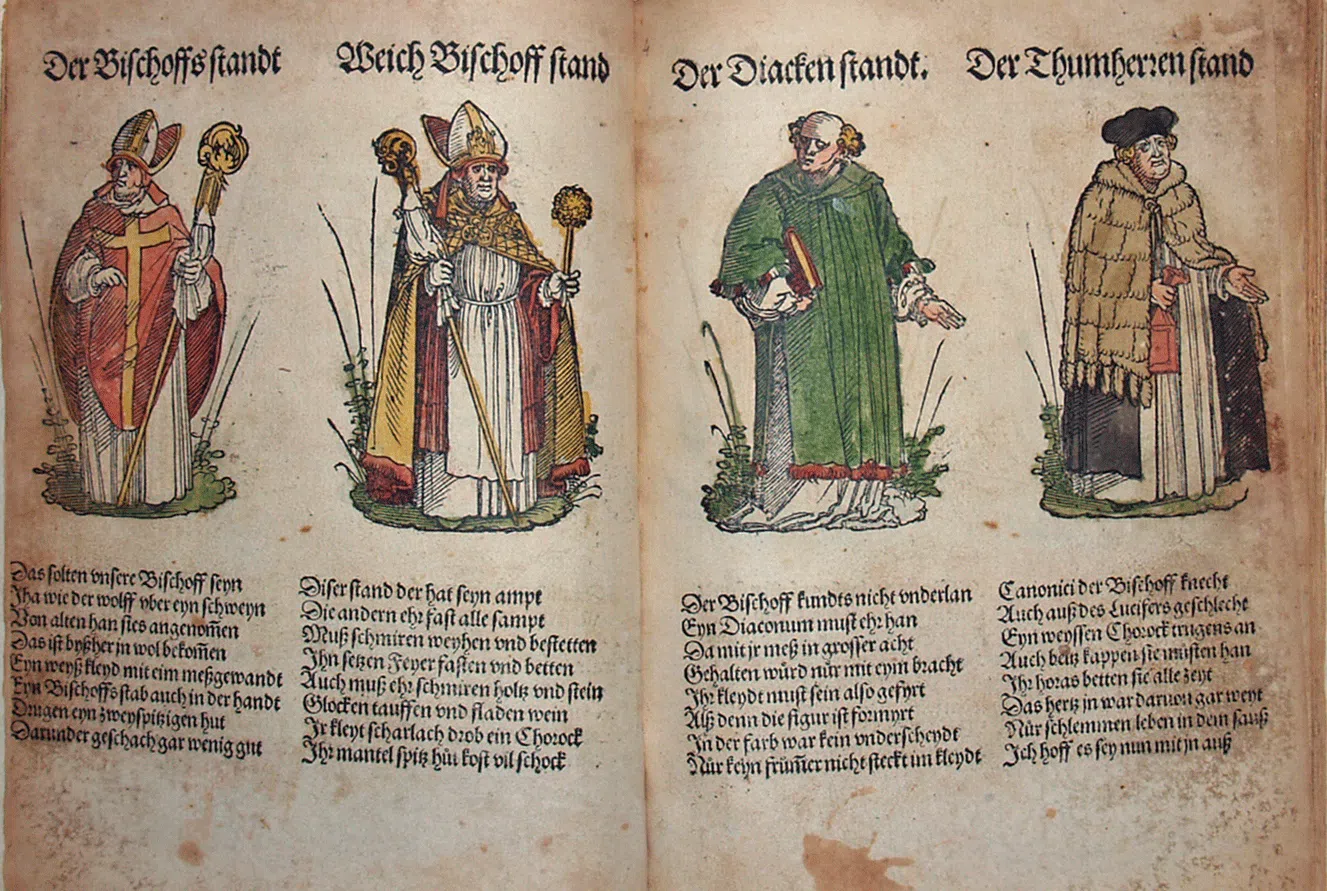 Der Bischoffs standt
Das solten vnsere Bischoff seyn
Jha wie der wolff vber eyn schweyn
Von alten han sies angenom̃en
Das ist byßher jn wol bekom̃en
Eyn weyß kleyd mit eim meßgewandt
Eyn Bischoffs stab auch in der handt
Drugen eyn zweyspitzigen hut
Darunder geschach gar wenig gut
Weich Bischoff stand
Diser stand der hat seyn ampt
Die andern ehr fast alle sampt
Muß schmiren weyhen vnd bestetten
Jhn setzen Feyer fasten vnd betten
Auch muß ehr schmiren holtz vnd stein
Glocken tauffen vnd fladen wein
Jr kleyt scharlach drob ein Chorock
Jhr mantel spitz hüt kost vil schock
Der Diacken standt.
Der Bischoff kundts nicht vnderlan
Eyn Diaconum must ehr han
Da mit jr meß in grosser acht
Gehalten würd nür mit eyin bracht
Jhr kleydt must sein also gefyrt
Alß denn die figur ist formyrt
Jn der farb war kein vnderscheydt
Nür keyn früm̃er nicht steckt im kleydt
Der Thumherren stand
Canonici der Bischoff knecht
Auch auß des Lucifers geschlecht
Eyn weyssen Chorock trugens an
Auch beltz kappen sie müsten han
Jhr horas betten sie alle zeyt
Das hertz jn war daruon gar weyt
Nür schlemmen leben in dem sauß
Jch hoff es sey nun mit jn auß